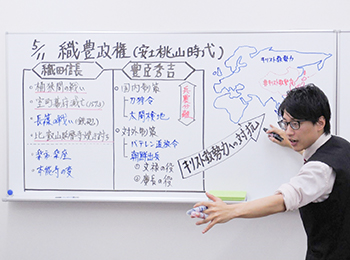 5/11 織豊政権(安土桃山時代)
織田信長
・桶狭間の戦い
・室町幕府滅亡(1573)
・長篠の戦い(鉄砲)
・比叡山延暦寺焼き討ち
・楽市楽座
・本能寺の変
豊臣秀吉
・国内制策
・刀狩令
・太閤検地
兵農分離
・対外制策
・バテレン追放令
・朝鮮出兵
①文禄の役
②慶長の役
キリスト教勢力
キリスト教勢力への対抗